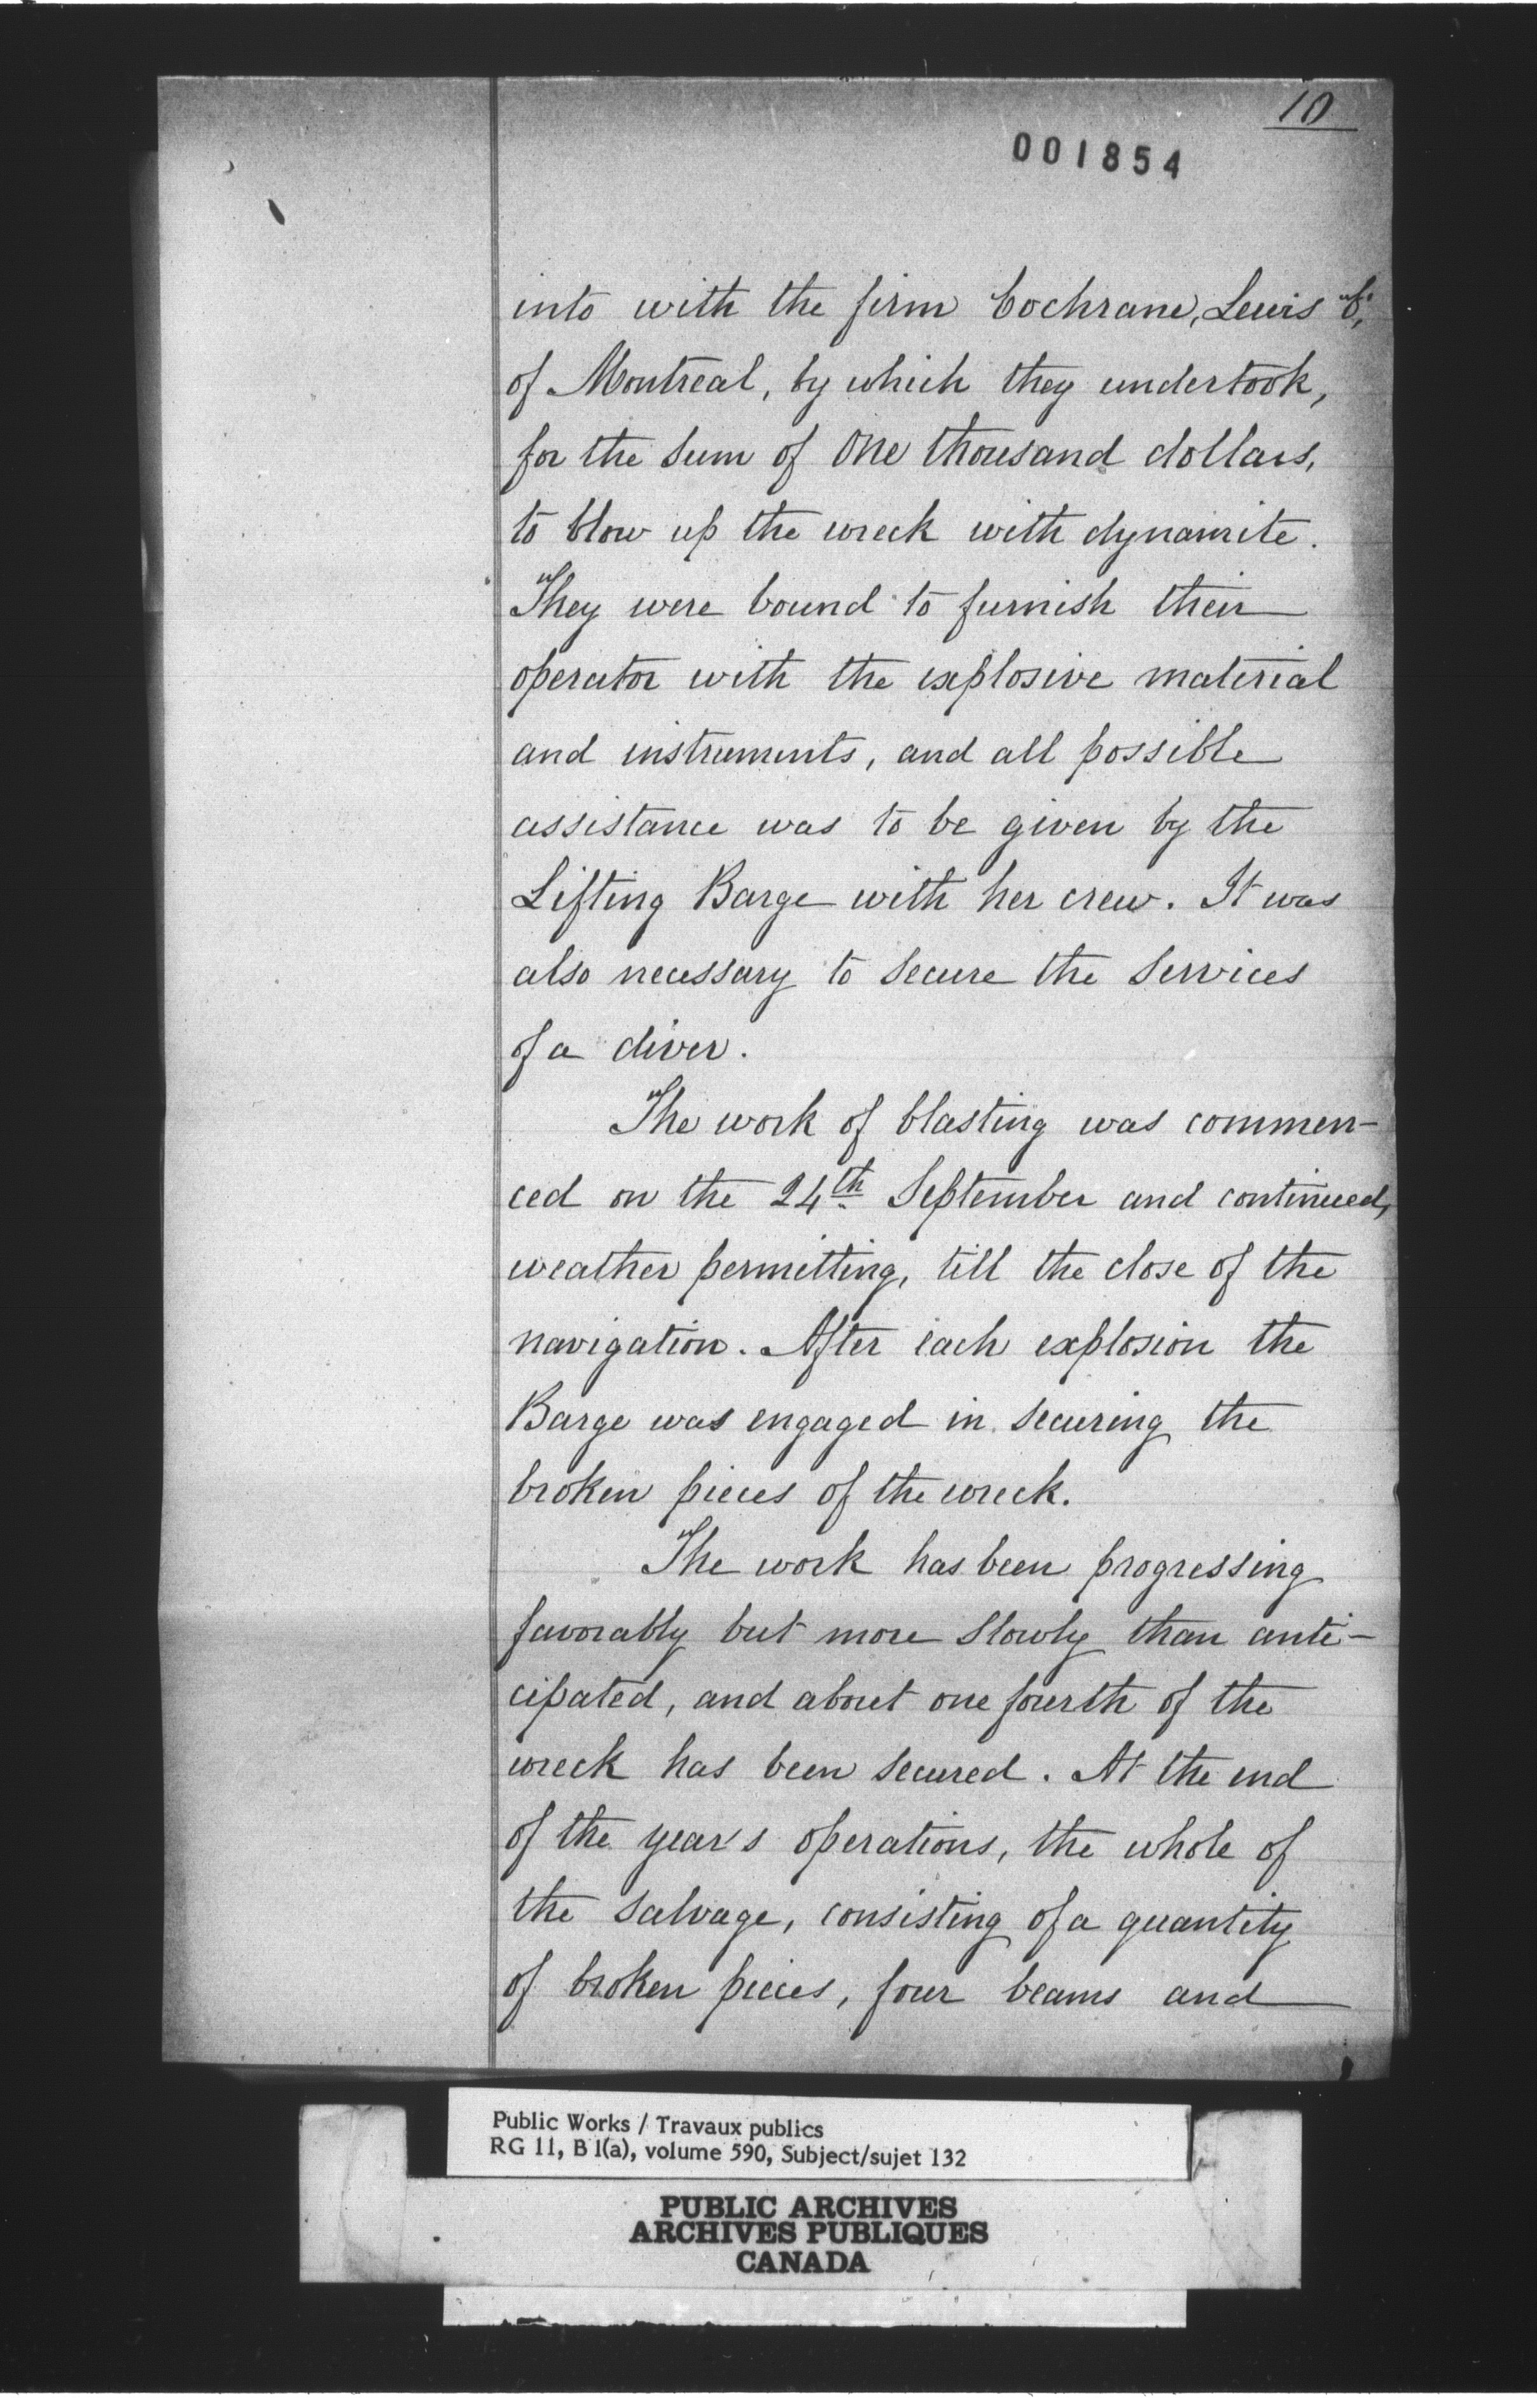 10
001854
into with the firm Cochrane, Lewis
of Montreal, by which they undertook,
for the sum of one thousand dollars,
to blow up the wreck with dynamite.
They were bound to furnish their
operator with the explosive material
and instruments, and all possible
assistance was to be given by the
Lifting Barge with her crew. It was
also necessary to secure the services
of a diver.
The work of blasting was commen-
ced on the 24th September and continued,
weather permitting, till the close of the
navigation. After each explosion the
Barge was engaged in securing the
broken pieces of the wreck.
The work has been progressing
favorably but more slowly than anti-
cipated, and about one fourth of the
wreck has been secured. At the end
of the year's operations, the whole of
the salvage, consisting of a quantity
of broken pieces, four beams and
Public Works / Travaux publics
RG 11, B 1(a), volume 590, Subject/sujet 132
PUBLIC ARCHIVES
ARCHIVES PUBLIQUES
CANADA